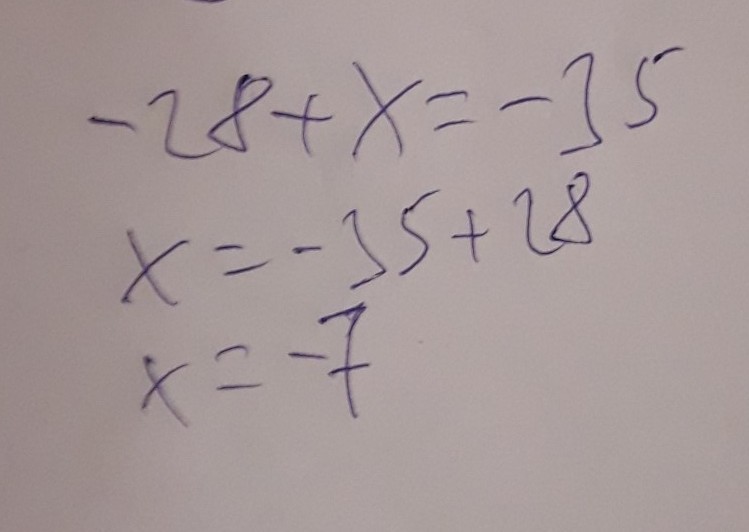 -28+x=-35
x=-35+28
x=-7